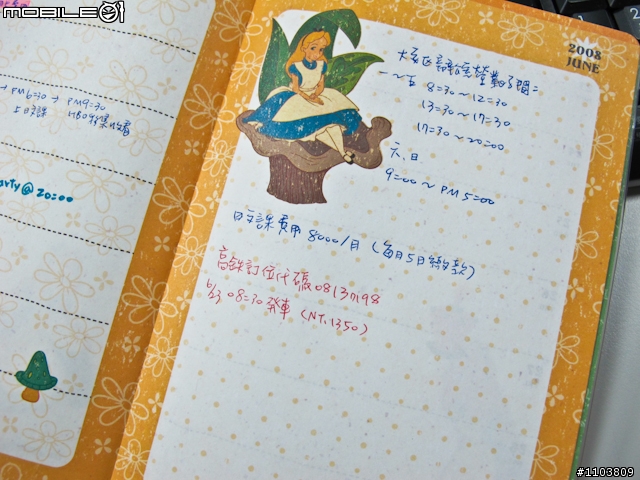 MOBILE01
PM6=30 → PM9=30
上日文課 HBO影集收看
arty@ 20:00
2008
JUNE
一~五 8=30~12=30
13=30~17=30
17=30~20=00
六.日
9=00~PM5=00
日文課費用 8000/月 (每月5日繳款)
高鐵訂位代號 08137198
6/23 08=30 発車 (NT.1350)
#1103809